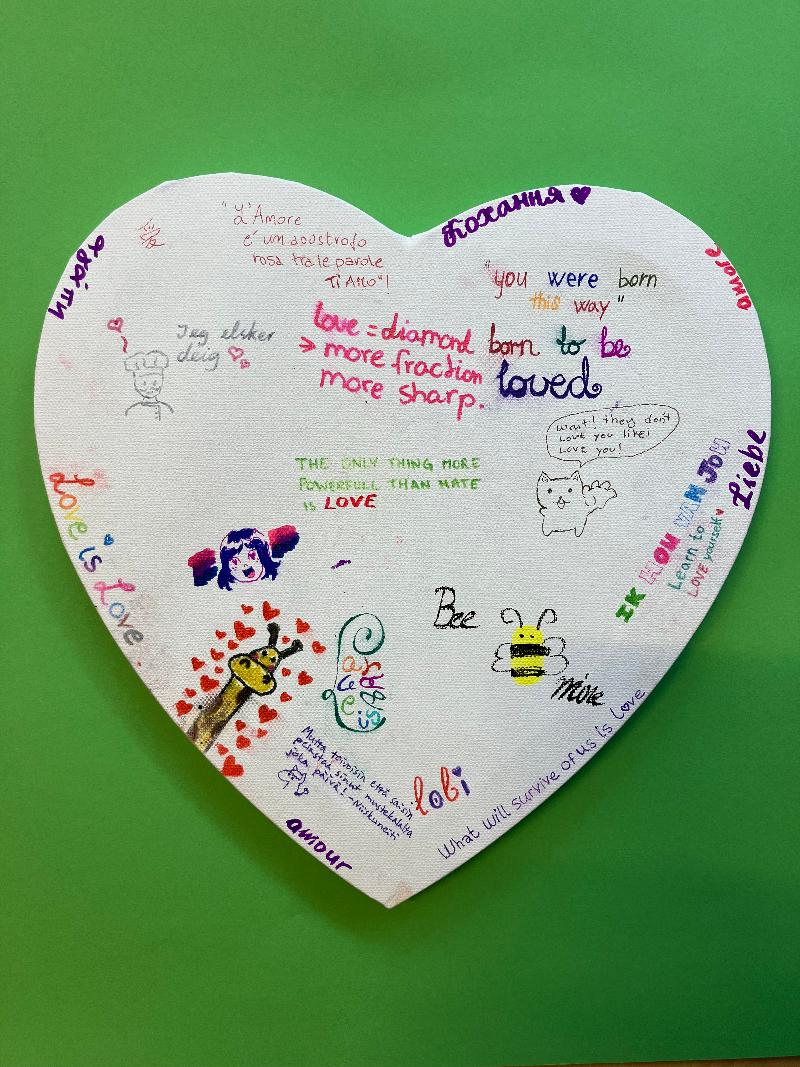 Кохання
愛
"L'Amore
é un apostrofo
rosa tra le parole
TI AMO"!
amore
"you were born
this way"
born to be
loved
love = diamond
> more fraction
more sharp.
Jeg elsker
deig
Wait! they don't
Love you like I
Love you!
THE ONLY THING MORE
POWERFULL THAN HATE
IS LOVE
Liebe
IK HOU VAN JOU
Learn to
LOVE yourself
Love is Love.
Bee
mine
Mutta toivoisin että saisin
pelastaa sinut mustekalalta
joka päivä! -Niiskuneiti
lobi
What will survive of us is love
amour